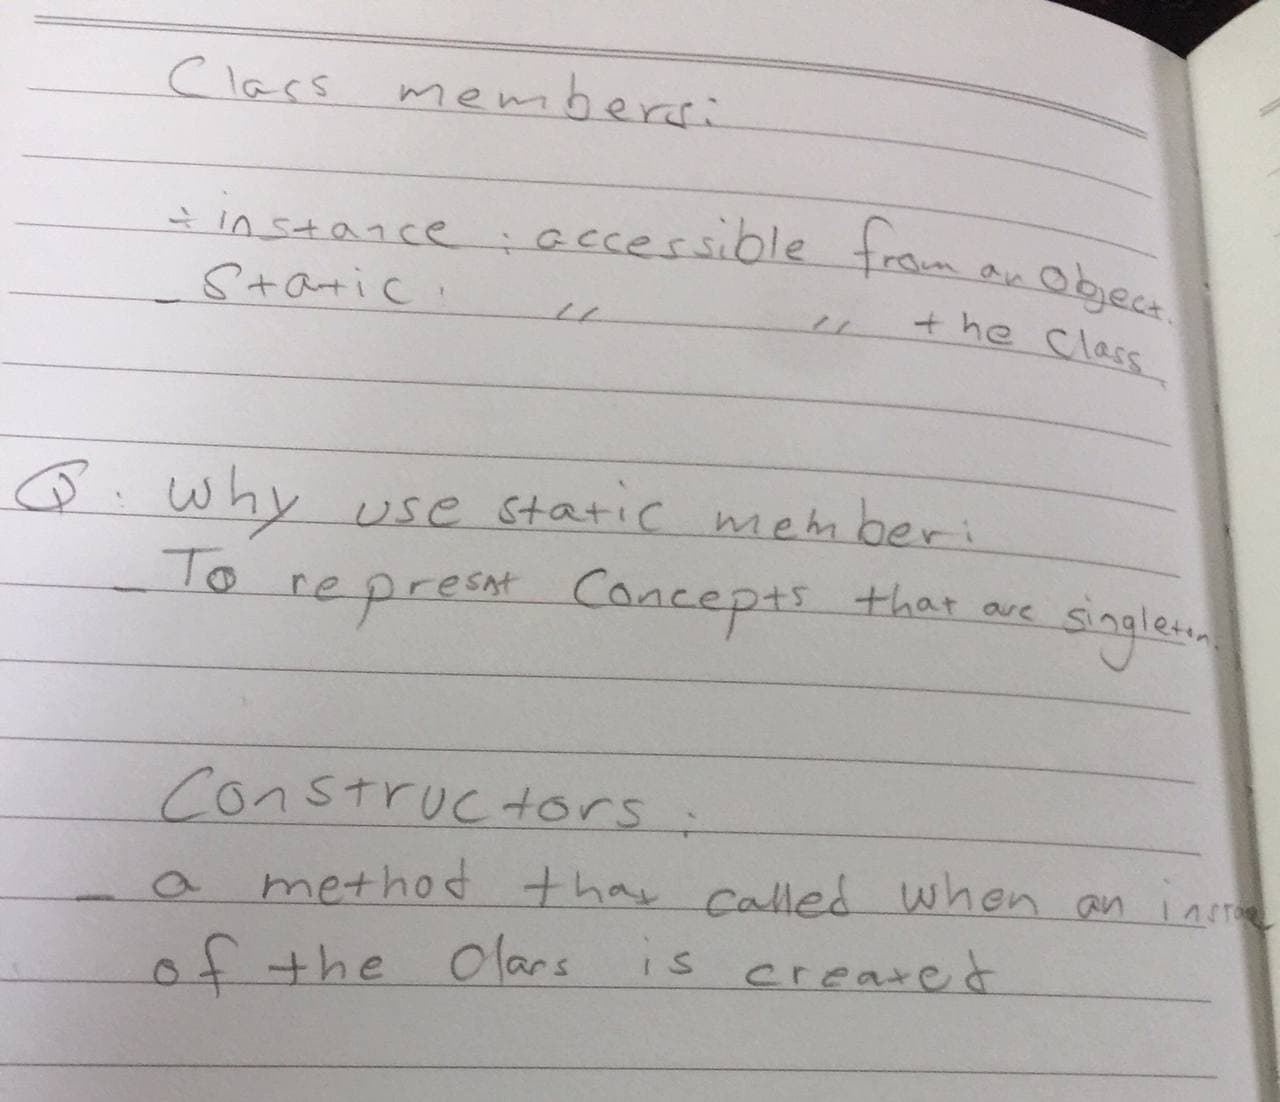 Class members:
- instance : accessible from an Object.
- Static : " " the Class
Q : Why use static member :
- To represnt Concepts that are singleton.
Constructors :
- a method that called when an instance
of the Class is created